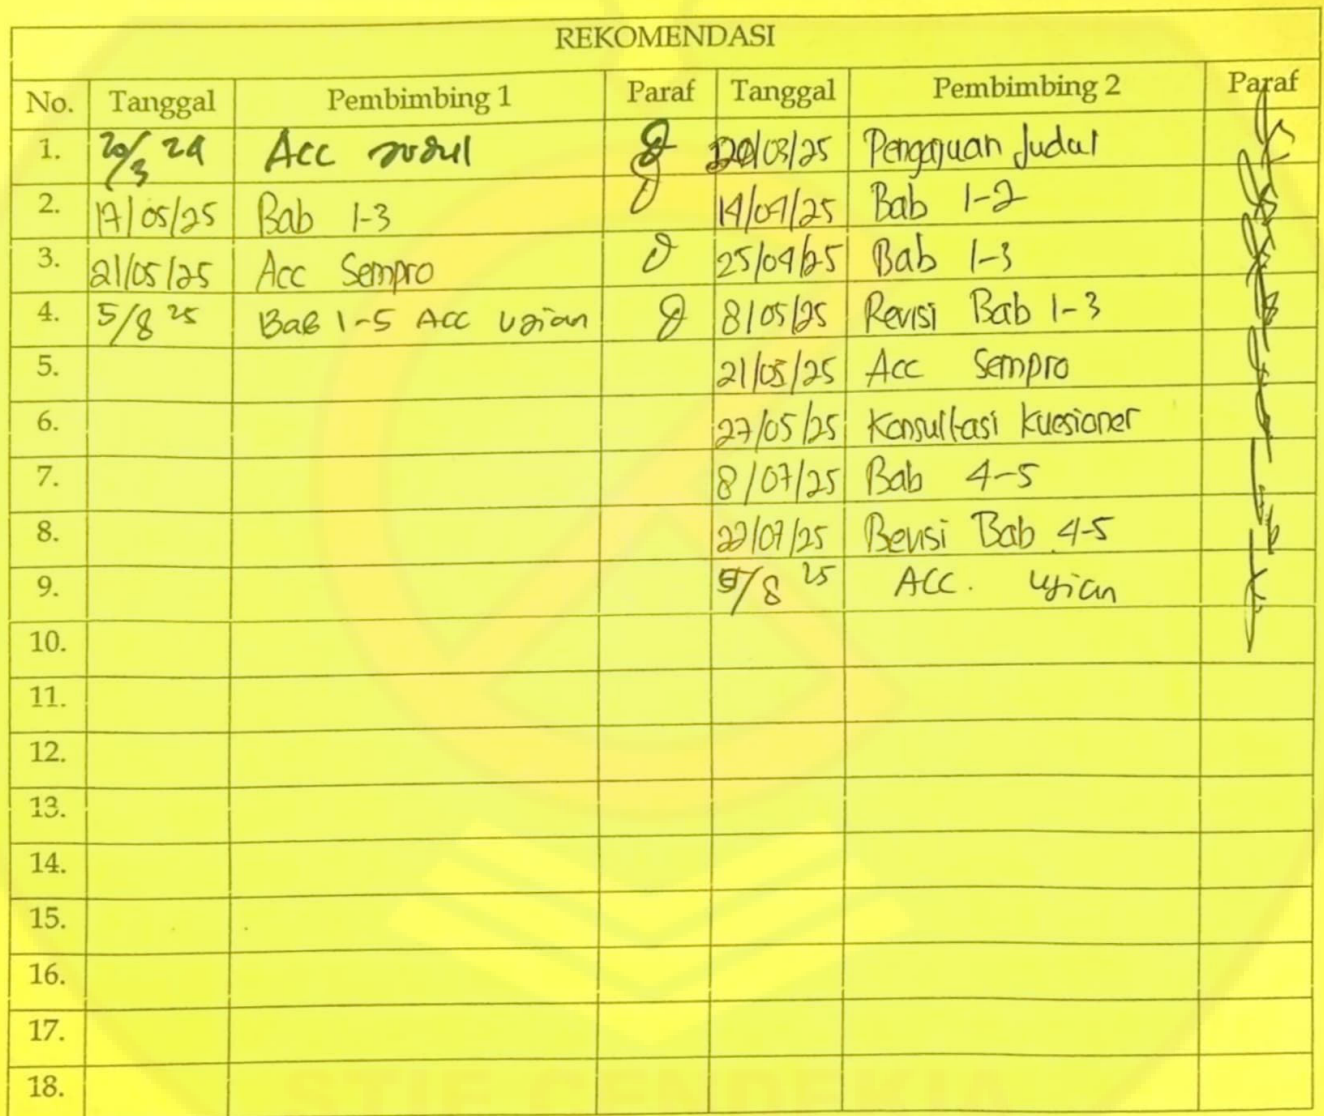 REKOMENDASI
No. Tanggal Pembimbing 1 Paraf Tanggal Pembimbing 2 Paraf
1. 20/3 24 Acc judul 20/03/25 Pengajuan Judul
2. 17/05/25 Bab 1-3 14/04/25 Bab 1-2
3. 21/05/25 Acc Sempro 25/04/25 Bab 1-3
4. 5/8 25 Bab 1-5 Acc Ujian 8/05/25 Revisi Bab 1-3
5. 21/05/25 Acc Sempro
6. 27/05/25 Konsultasi Kuesioner
7. 8/07/25 Bab 4-5
8. 22/07/25 Revisi Bab 4-5
9. 5/8 25 ACC. Ujian
10.
11.
12.
13.
14.
15.
16.
17.
18.